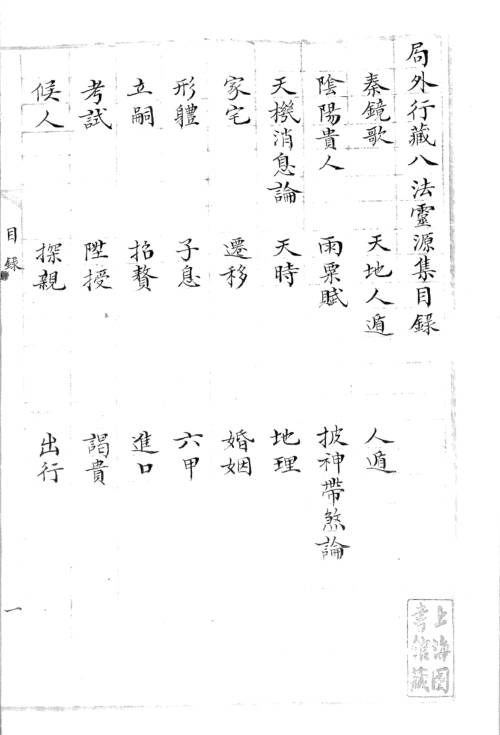 局外行藏八法靈源集目錄
秦鏡歌 天地人遁 人遁
陰陽貴人 雨粟賦 披神帶煞論
天機消息論 天時 地理
家宅 遷移 婚姻
形體 子息 六甲
立嗣 招贅 進口
考試 陞授 謁貴
候人 探親 出行
目錄
一
上海圖書館藏